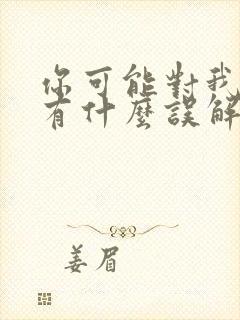 你可能對我
有什麼誤解
姜眉